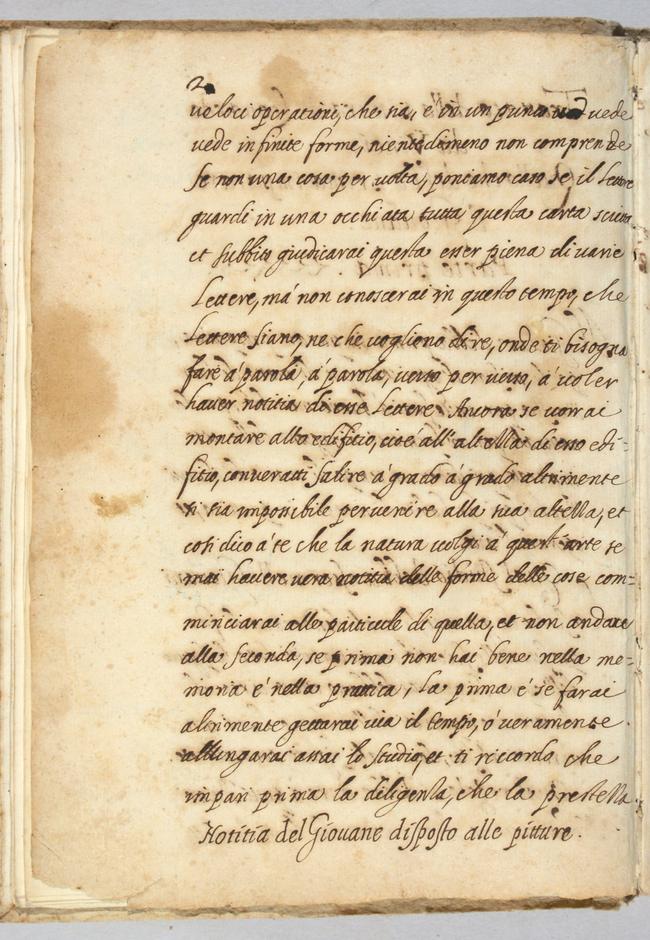 2
veloci operationi, che sia, e in un punto ved vede
vede infinite forme, nientedimeno non comprende
se non una cosa per volta, poniamo caso se il Lettore
guardi in una occhiata tutta questa carta scritta
et subbito giudicarai questa esser piena di varie
Lettere, mà non conoscerai in questo tempo, che
Lettere siano, ne che vogliono dire, onde ti bisogna
fare à parola, à parola, verso per verso, à voler
haver notitia di esse Lettere. Ancora se vorrai
montare alto edifitio, cioe all'altezza di esso edi=
fitio, converatti salire à grado à grado altrimente
ti sia impossibile pervenire alla sua altezza, et
così dico à te che la natura volgi à quest'arte se
mai havere vera notitia delle forme delle cose com=
minciarai alle particule di quella, et non andare
alla seconda, se prima non hai bene nella me=
moria e' nella prattica, La prima è se farai
altrimente gettarai via il tempo, ò veramente
allungarai assai lo studio, et ti riccordo che
impari prima la diligenza, che la prestezza.
Notitia del Giovane disposto alle pitture.